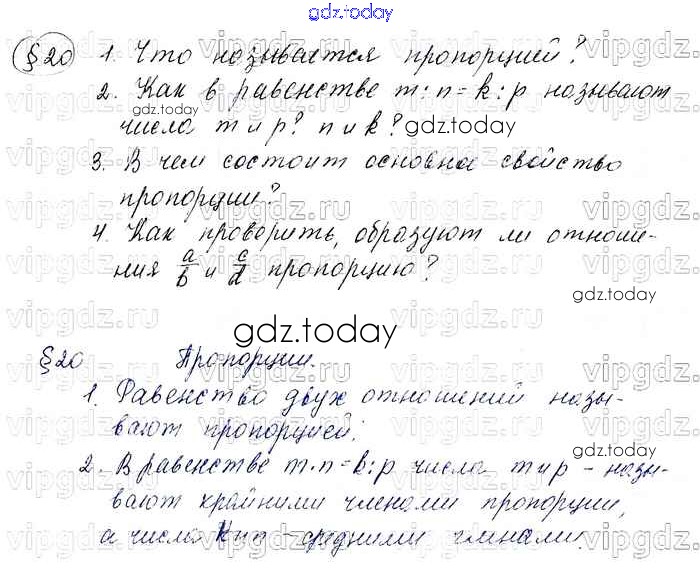 gdz.today
§20 1. Что называется пропорцией?
2. Как в равенстве m:n=k:p называют
числа m и p? n и k?
gdz.today
3. В чем состоит основна свойство
пропорции?
4. Как проверить, образуют ли отноше-
ния a/b и c/d пропорцию?
gdz.today
gdz.today
§20 Пропорции.
1. Равенство двух отношений назы-
вают пропорцией.
2. В равенстве m·n=k:p числа m и p – назы-
вают крайними членами пропорции,
а числа k и n – средними членами.
gdz.today